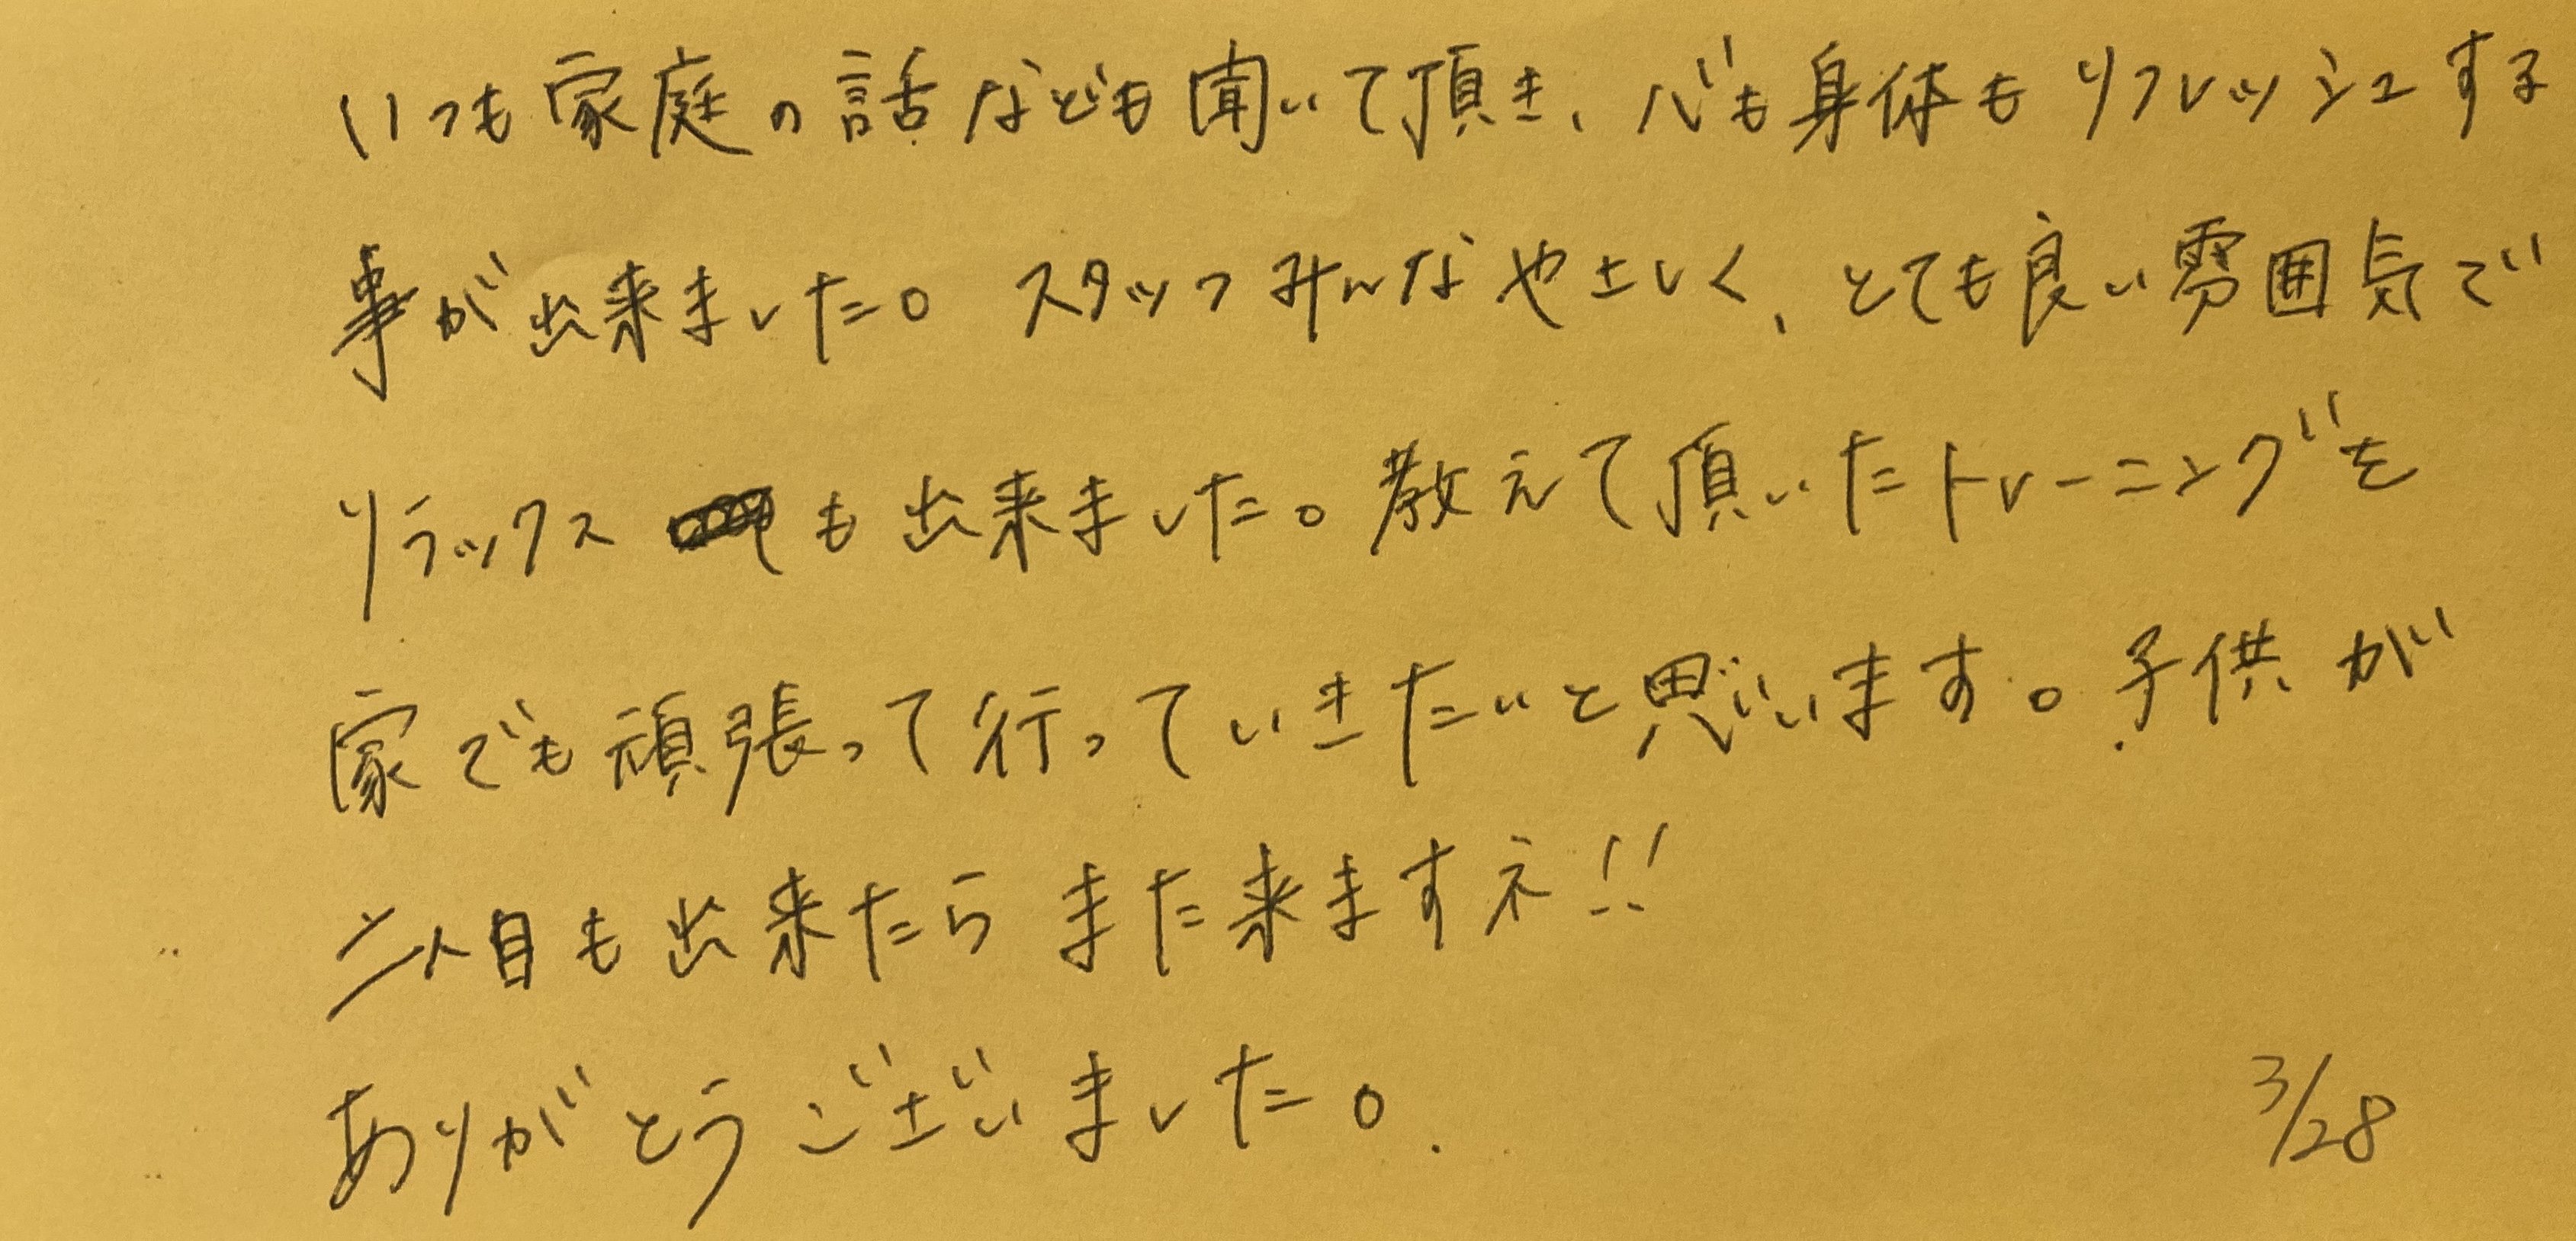 いつも家庭の話なども聞いて頂き、心も身体もリフレッシュする
事が出来ました。スタッフみんなやさしく、とても良い雰囲気で
リラックスも出来ました。教えて頂いたトレーニングを
家でも頑張って行っていきたいと思います。子供が
二人目も出来たらまた来ますネ!!
ありがとうございました。
3/28